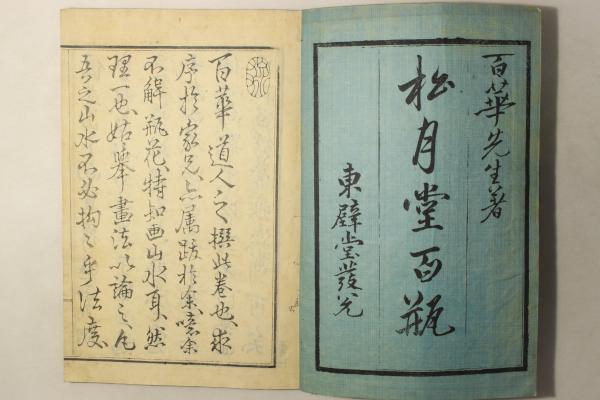 百華先生著
松月堂百瓶
東壁堂發兌
百華道人之撰此卷也求
序於家兄亦属跋於余噫余
不解瓶花特知画山水耳然
理一也姑舉畫法以論之凡
吾之山水不必拘々乎法度